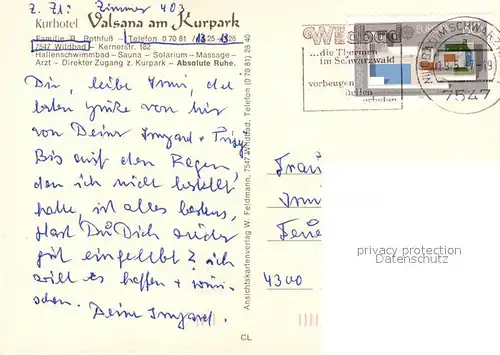 z. Zt. Zimmer 403
Kurhotel Valsana am Kurpark
Familie R. Rothfuß Telefon 0 70 81 /
7547 Wildbad - Kernerstr. 182
Hallenschwimmbad - Sauna - Solarium - Massage -
Arzt - Direkter Zugang z. Kurpark - Absolute Ruhe.
Dir, liebe Irmi, die
besten Grüße von hier
von Deiner Irmgard +
Bis auf den Regen,
den ich nicht bestellt
hatte, ist alles bestens,
Hast Du Dich wieder
gut eingelebt? ich
will es hoffen + wün-
schen. Deine Irmgard.
Ansichtskartenverlag W. Feldmann, 7547 Wildbad, Telefon (0 70 81) 28 40
CL
Wildbad
...die Thermen
im Schwarzwald
vorbeugen
heilen
erholen
WILDBAD IM SCHWARZW
7547
Frau
Irm
4300
privacy protection
Datenschutz